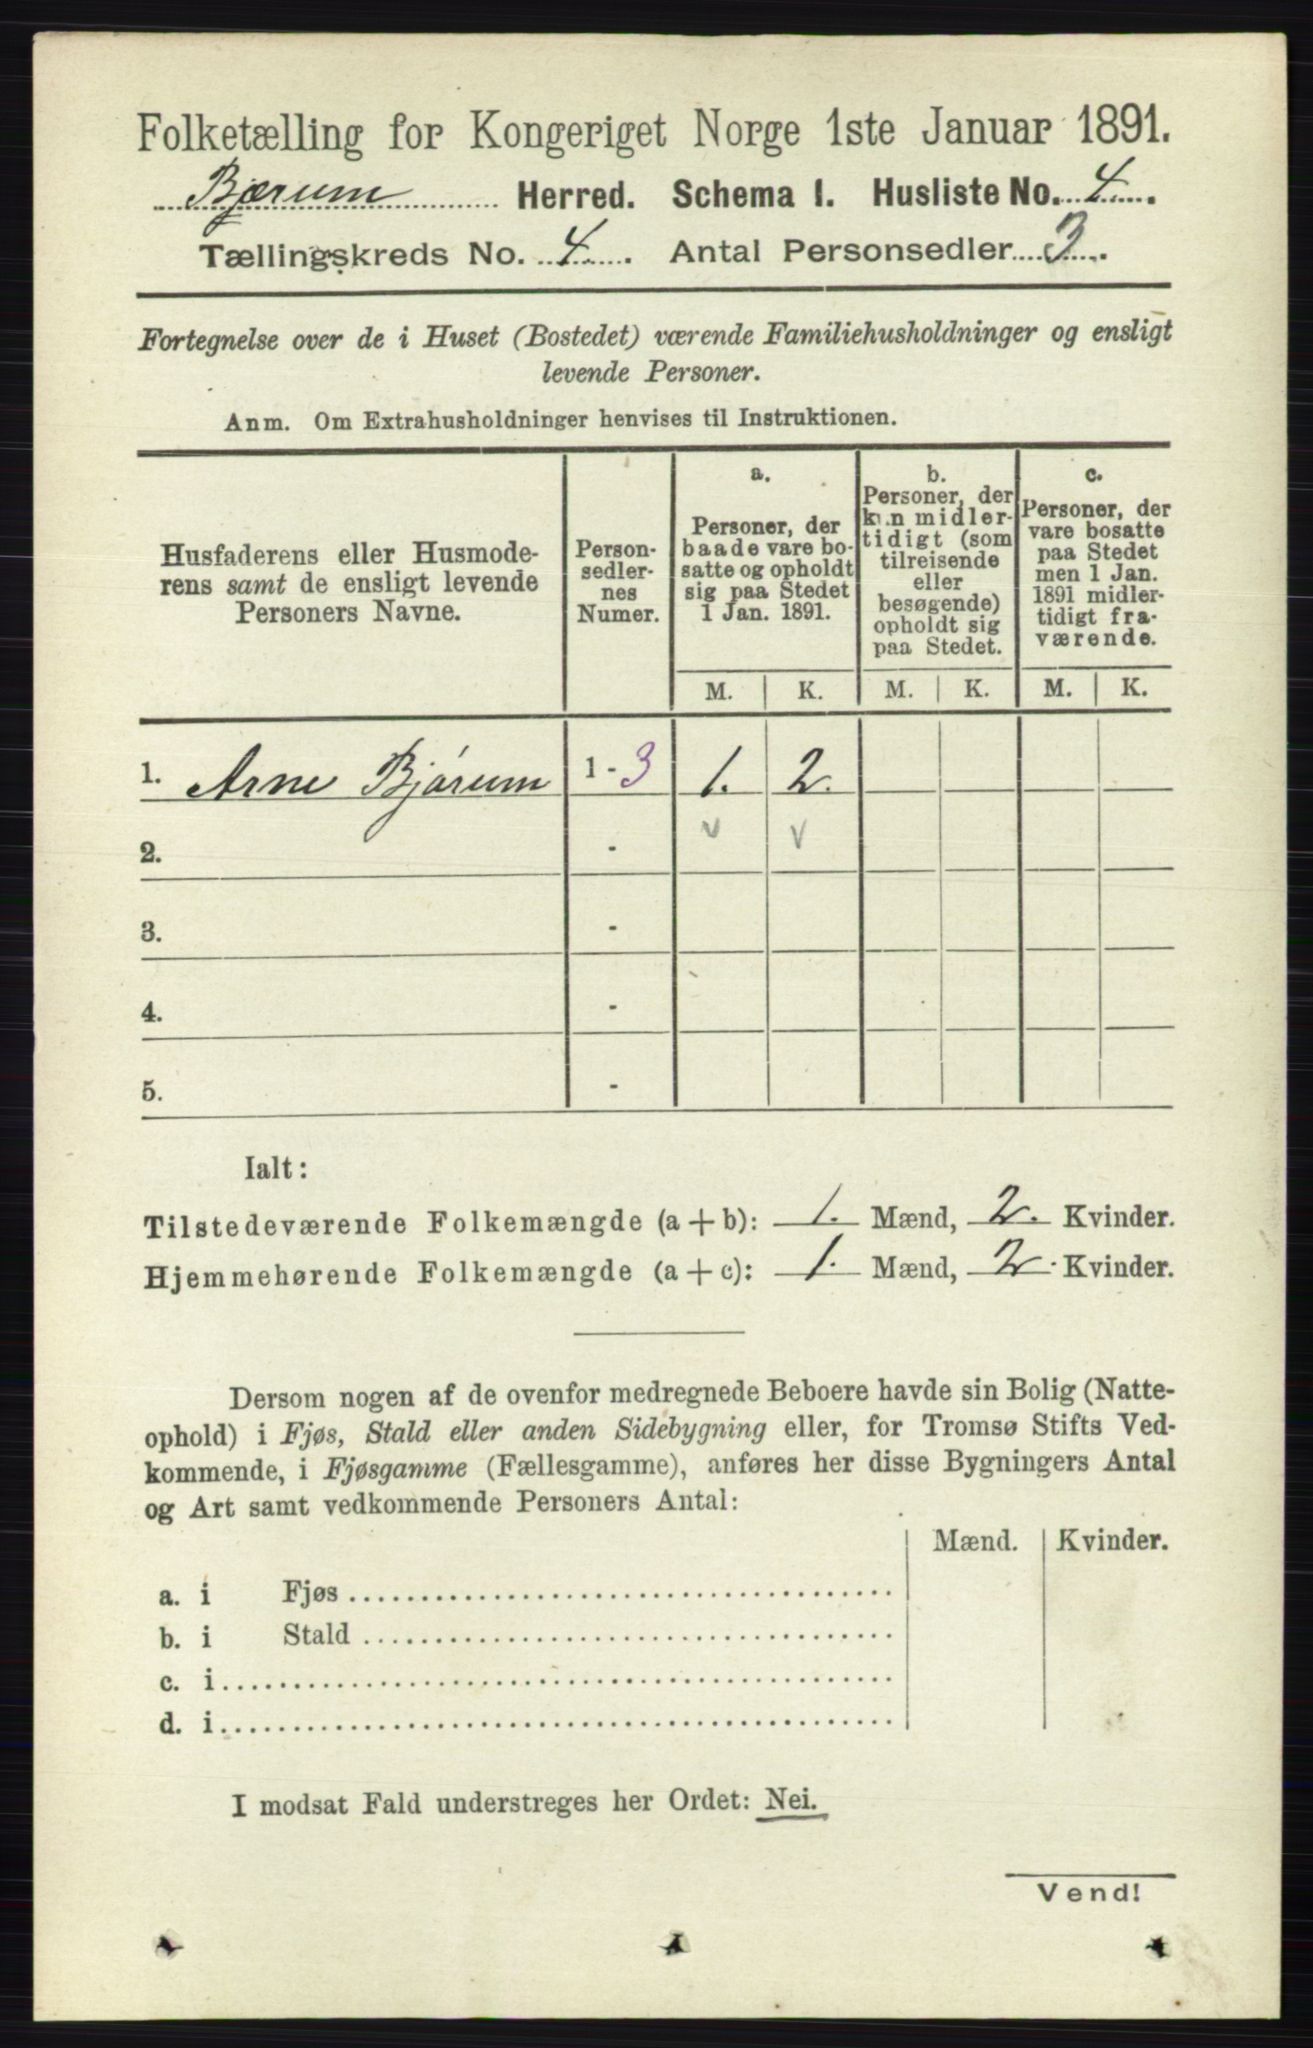 Folketælling for Kongeriget Norge 1ste Januar 1891.
Bjærum Herred. Schema I. Husliste No. 4.
Tællingskreds No. 4. Antal Personsedler 3.
Fortegnelse over de i Huset (Bostedet) værende Familiehusholdninger og ensligt
levende Personer.
Anm. Om Extrahusholdninger henvises til Instruktionen.
Husfaderens eller Husmode-
rens samt de ensligt levende
Personers Navne.
Person-
sedler-
nes
Numer.
a.
Personer, der
baade vare bo-
satte og opholdt
sig paa Stedet
1 Jan. 1891.
b.
Personer, der
kun midler-
tidigt (som
tilreisende
eller
besøgende)
opholdt sig
paa Stedet.
c.
Personer, der
vare bosatte
paa Stedet
men 1 Jan.
1891 midler-
tidigt fra-
værende.
M. K. M. K. M. K.
1. Arne Bjørum 1-3 1. 2.
2. -
3. -
4. -
5. -
Ialt:
Tilstedeværende Folkemængde (a + b): 1. Mænd, 2. Kvinder.
Hjemmehørende Folkemængde (a + c): 1. Mænd, 2. Kvinder.
Dersom nogen af de ovenfor medregnede Beboere havde sin Bolig (Natte-
ophold) i Fjøs, Stald eller anden Sidebygning eller, for Tromsø Stifts Ved-
kommende, i Fjøsgamme (Fællesgamme), anføres her disse Bygningers Antal
og Art samt vedkommende Personers Antal:
Mænd. Kvinder.
a. i Fjøs
b. i Stald
c. i
d. i
I modsat Fald understreges her Ordet: Nei.
Vend!